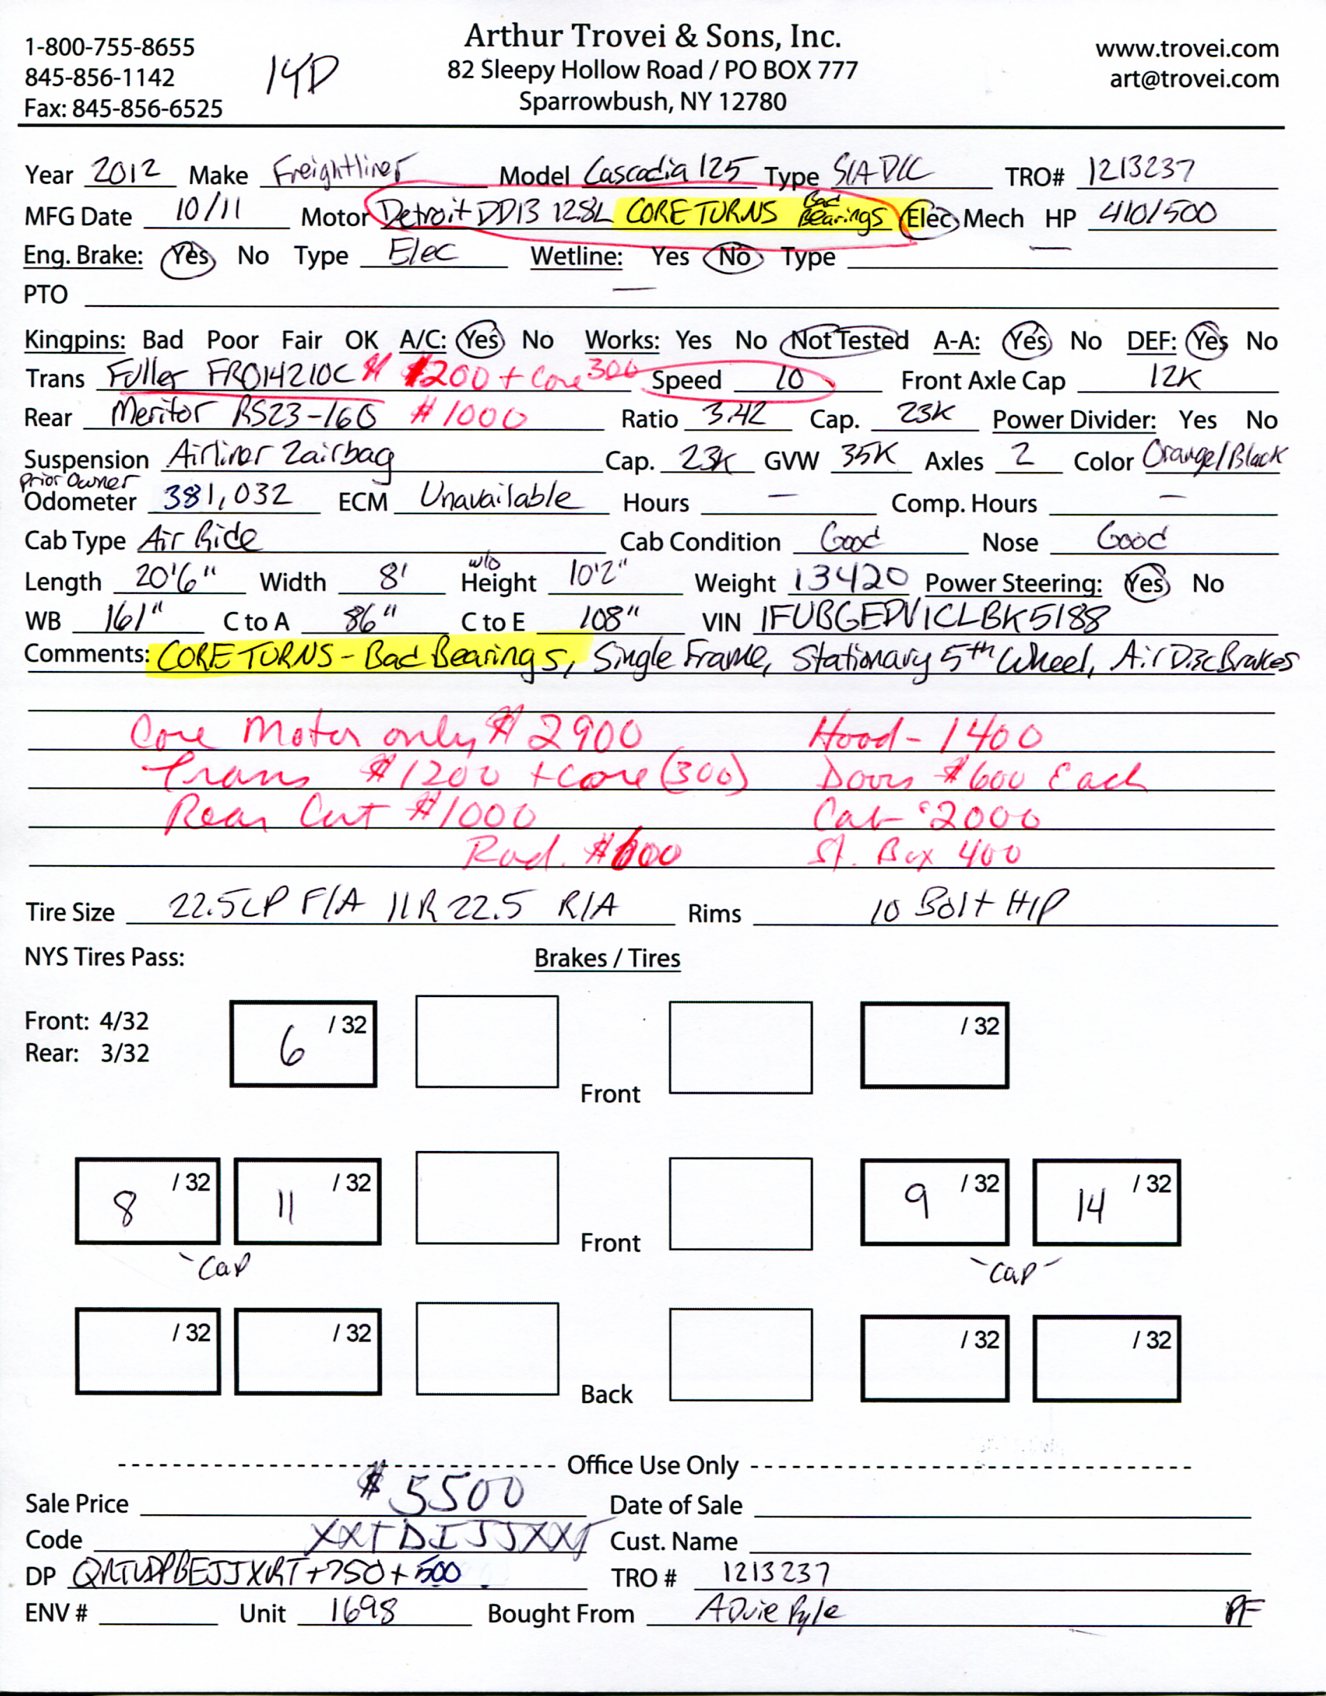 1-800-755-8655
845-856-1142
Fax: 845-856-6525
14D
Arthur Trovei & Sons, Inc.
82 Sleepy Hollow Road / PO BOX 777
Sparrowbush, NY 12780
www.trovei.com
art@trovei.com
Year 2012 Make Freightliner Model Cascadia 125 Type S/A D/C TRO# 1213237
MFG Date 10/11 Motor Detroit DD13 128L CORE TURNS Bad Bearings Elec Mech HP 410/500
Eng. Brake: Yes No Type Elec Wetline: Yes No Type
PTO —
Kingpins: Bad Poor Fair OK A/C: Yes No Works: Yes No Not Tested A-A: Yes No DEF: Yes No
Trans Fuller FRO14210C $1200 + Core 300 Speed 10 Front Axle Cap 12K
Rear Meritor RS23-160 #1000 Ratio 3.42 Cap. 23K Power Divider: Yes No
Suspension Airliner 2airbag Cap. 23K GVW 35K Axles 2 Color Orange/Black
Prior Owner
Odometer 381,032 ECM Unavailable Hours — Comp. Hours —
Cab Type Air Ride Cab Condition Good Nose Good
Length 20'6" Width 8' w/o Height 10'2" Weight 13420 Power Steering: Yes No
WB 161" C to A 86" C to E 108" VIN 1FUBGEDV1CLBK5188
Comments: CORE TURNS - Bad Bearings, Single Frame, Stationary 5th Wheel, Air Disc Brakes
Core Motor only $2900 Hood - 1400
Trans $1200 + Core (300) Doors $600 Each
Rear Cut $1000 Cab $2000
Rad. $600 St. Box 400
Tire Size 22.5LP F/A 11R22.5 R/A Rims 10 Bolt H/P
NYS Tires Pass: Brakes / Tires
Front: 4/32
Rear: 3/32
6 /32 /32
Front
8 /32 11 /32 9 /32 14 /32
Front
- Cap - Cap -
/32 /32 /32 /32
Back
Office Use Only
Sale Price $5500 Date of Sale
Code XXTDIJJXXT Cust. Name
DP +750+500 TRO # 1213237
ENV # Unit 1698 Bought From Pyle PF